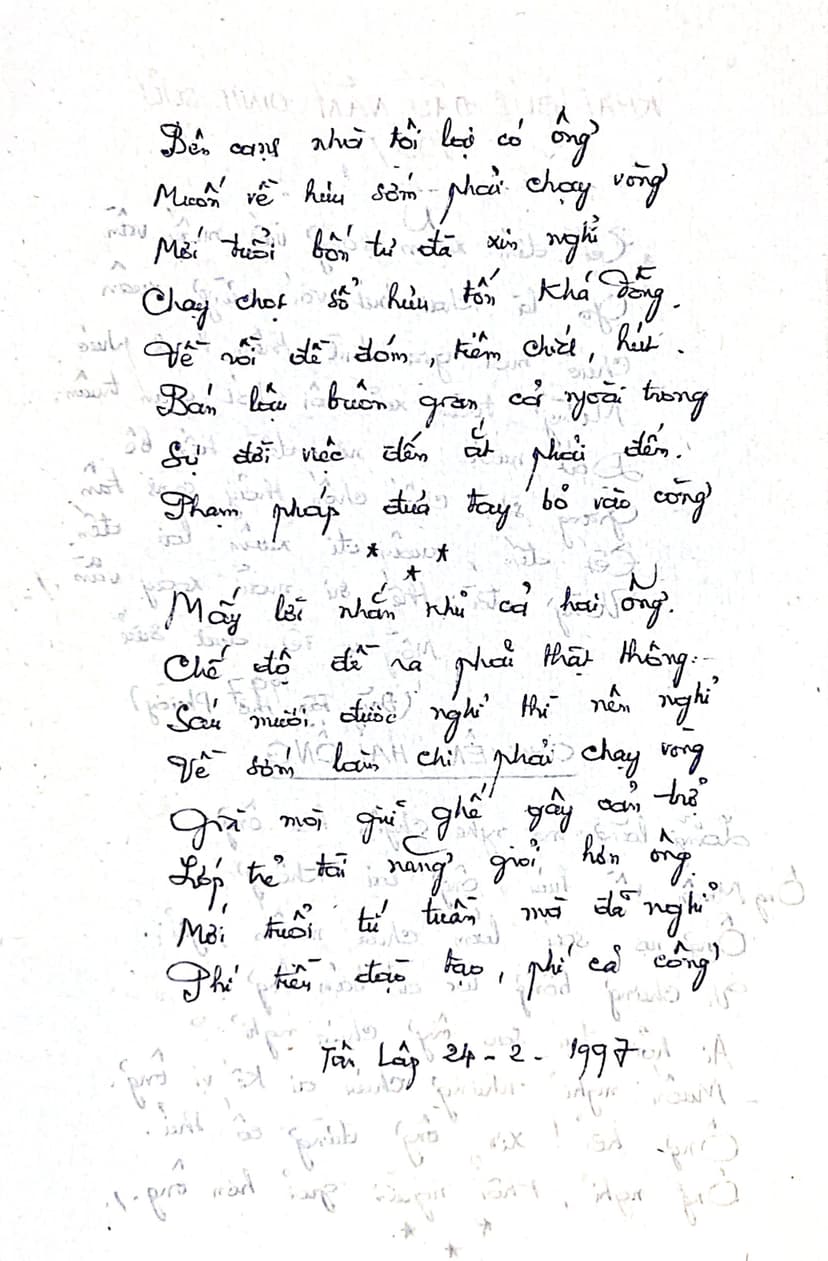 Bên cạnh nhà tôi lại có ông
Muốn về hưu sớm phải chạy vòng
Mới tuổi bốn tư đã xin nghỉ
Chạy chọt sổ hưu tốn khá đồng.
Về rồi đề đóm, tiêm chích, hút.
Bán lậu buôn gian cả ngoài trong
Sự đời việc đến ắt phải đến.
Phạm pháp đưa tay bỏ vào còng
* * *
Mấy lời nhắn nhủ cả hai ông.
Chế độ đề ra phải thật thông.
Sáu mươi được nghỉ thì nên nghỉ
Về sớm làm chi phải chạy vòng
Già mà giữ ghế gây cản trở
Lớp trẻ tài năng giỏi hơn ông.
Mới tuổi tứ tuần mà đã nghỉ
Phí tiền đào tạo, phí cả công
Tân Lập 24-2-1997